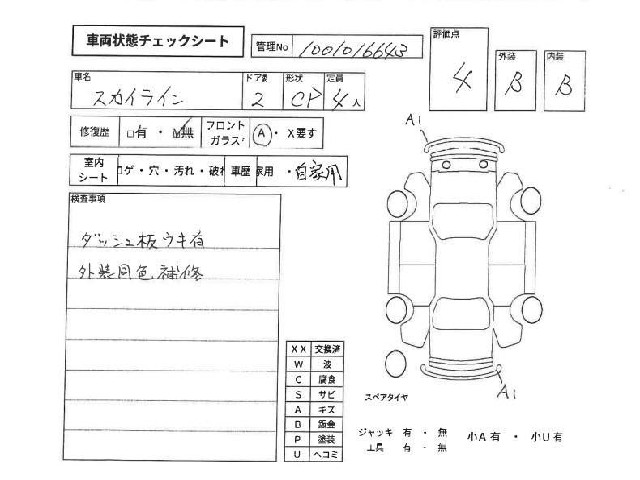 車両状態チェックシート
管理No 1001016643
評価点 4
外装 B
内装 B
車名 スカイライン
ドア数 2
形状 CP
定員 4人
修復歴 □有 ・ ☑無
フロントガラス A ・ X要す
室内シート コゲ・穴・汚れ・破れ
車歴 家用 ・自家用
検査事項
ダッシュ板ウキ有
外装同色補修
A1
XX 交換済
W 波
C 腐食
S サビ
A キズ
B 鈑金
P 塗装
U ヘコミ
A1
スペアタイヤ
ジャッキ 有 ・ 無
工具 有 ・ 無
小A有 ・ 小U有